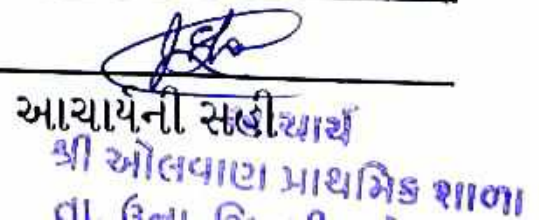 આચાર્યની સહી
આચાર્ય
શ્રી ઓલવાણ પ્રાથમિક શાળા
તા. ઉના